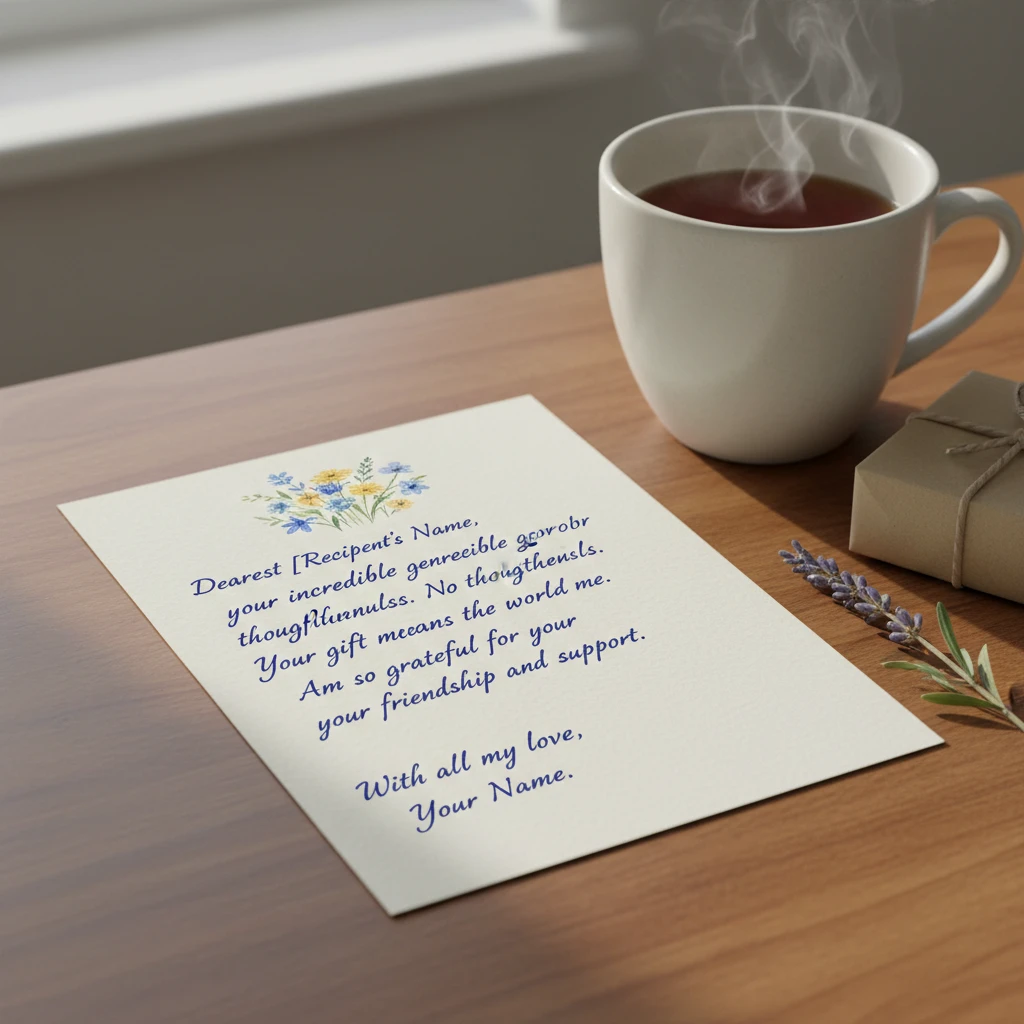 Dearest [Recipent's Name,
your incredible genreecible
No thougthensls.
Your gift means the world me.
Am so grateful for your
your friendship and support.
With all my love,
Your Name.